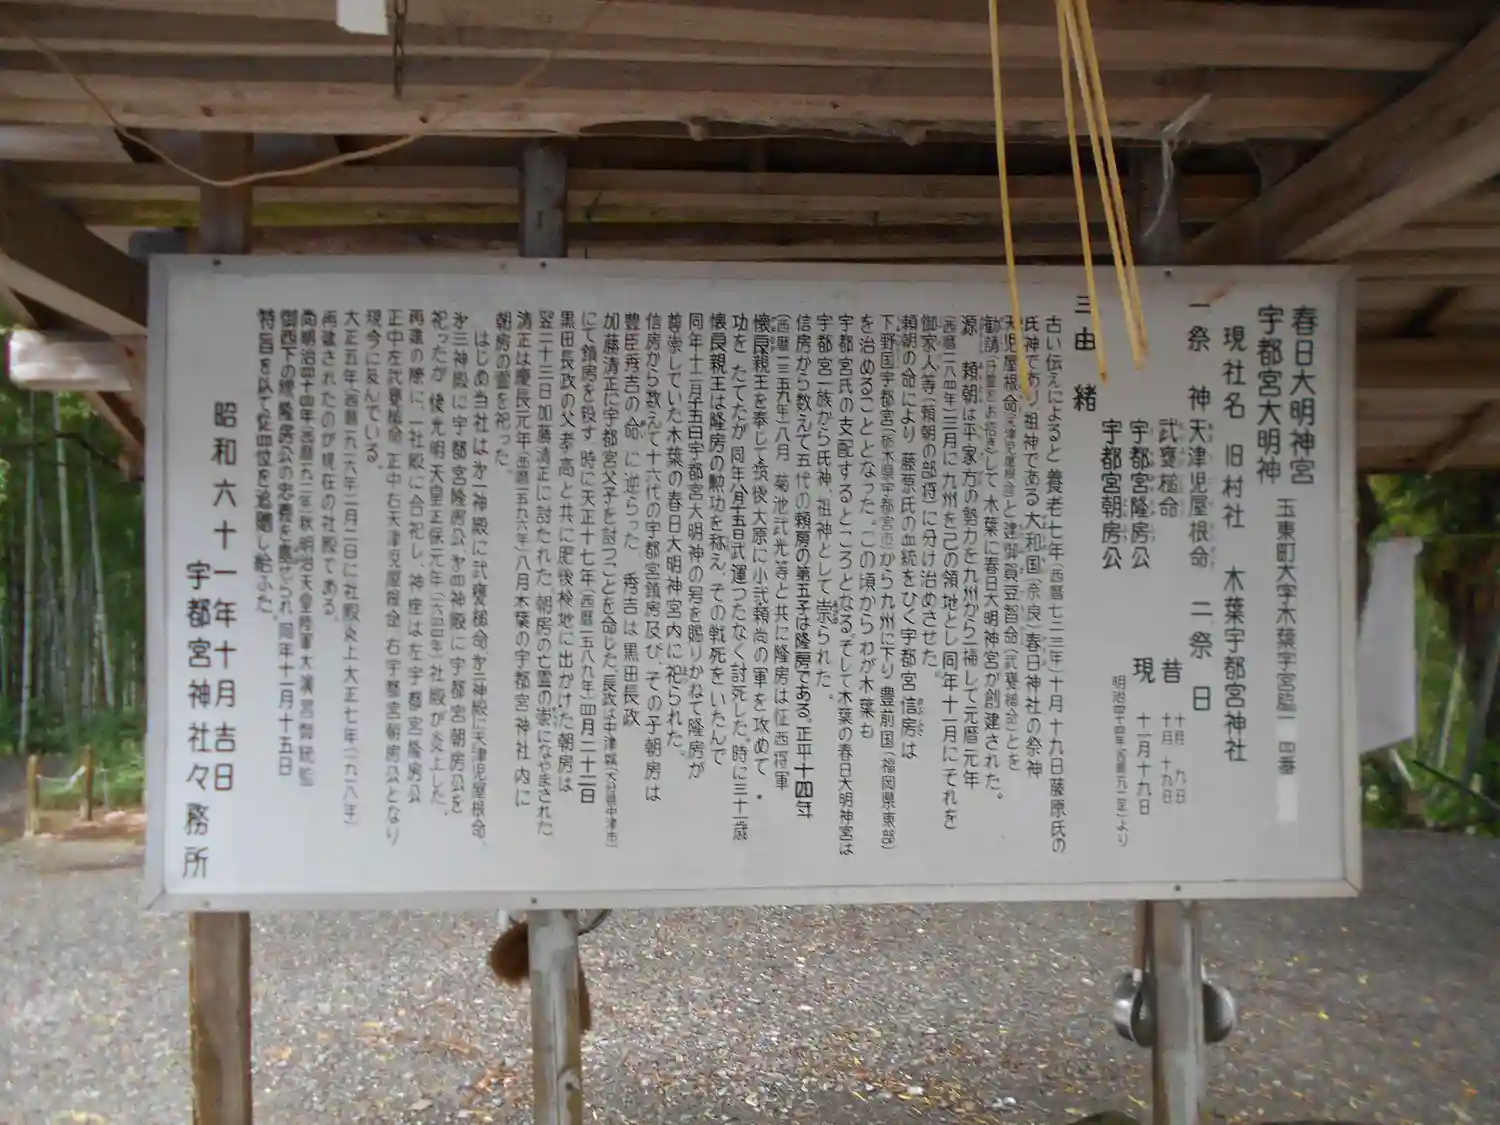 春日大明神宮
宇都宮大明神 玉東町大字木葉字宮脇
現社名 旧村社 木葉宇都宮神社
一 祭 神 天津児屋根命 二 祭 日
武甕槌命 昔 十月 九日
十月 十九日
宇都宮隆房公 現 十一月十九日
宇都宮朝房公 明治四十四年(西暦一九一一年)より
三 由 緒
古い伝えによると 養老七年(西暦七二三年)十月十九日藤原氏の
氏神であり 祖神である大和国(奈良)春日神社の祭神
天児屋根命(天津児屋根命)と建御賀豆智命(武甕槌命)とを
勧請(分霊をお招き)して 木葉に春日大明神宮が創建された。
源 頼朝は平家方の勢力を九州から一掃して元暦元年
(西暦一一八四年)三月に九州を己の領地とし同年十一月にそれを
御家人等(頼朝の部将)に分け治めさせた。
頼朝の命により 藤原氏の血統をひく宇都宮 信房は
下野国宇都宮(栃木県宇都宮市)から九州に下り 豊前国(福岡県東部)
を治めることとなった。この頃からわが木葉も
宇都宮氏の支配するところとなる。そして木葉の春日大明神宮は
宇都宮一族から氏神、祖神として崇められた。
信房から数えて五代の頼房の第五子は隆房である。正平十四年
(西暦一三五九年)八月 菊池武光等と共に隆房は征西将軍
懐良親王を奉じて筑後大原に小武頼尚の軍を攻めて・
功を たてたが 同年八月十五日武運つたなく討死した。時に三十一歳
懐良親王は隆房の勲功を称え、その戦死をいたんで
同年十一月十五日宇都宮大明神の号を賜りかねて隆房が
尊崇していた木葉の春日大明神宮内に祀られた。
信房から数えて十六代の宇都宮鎮房及び、その子朝房は
豊臣秀吉の命 に逆らった、秀吉は黒田長政
加藤清正に宇都宮父子を討つことを命じた、長政は中津城(大分県中津市)
にて鎮房を殺す 時に天正十七年(西暦一五八九年)四月二十二日
黒田長政の父孝高と共に肥後検地に出かけた朝房は
翌二十三日加藤清正に討たれた 朝房の亡霊の祟になやまされた
清正は慶長元年(西暦一五九六年)八月木葉の宇都宮神社内に
朝房の霊を祀った。
はじめ当社は㐧一神殿に武甕槌命、㐧二神殿に天津児屋根命、
㐧三神殿に宇都宮隆房公 㐧四神殿に宇都宮朝房公を
祀ったが 後光明天皇正保元年(一六四四年)社殿が炎上した、
再建の際に、一社殿に合祀し、神座は左宇都宮隆房公
正中左武甕槌命 正中右天津児屋根命 右宇都宮朝房公となり
現今に及んでいる
大正五年(西暦一九一六年)二月二日に社殿炎上大正七年(一九一八年)
再建されたのが現在の社殿である
尚明治四十四年(西暦一九一一年)秋明治天皇陸軍大演習御統監
御西下の際、隆房公の忠義を嘉せられ 同年十一月十五日
特旨を以て従四位を追贈し給ふた。
昭和六十一年十月吉日
宇都宮神社々務所